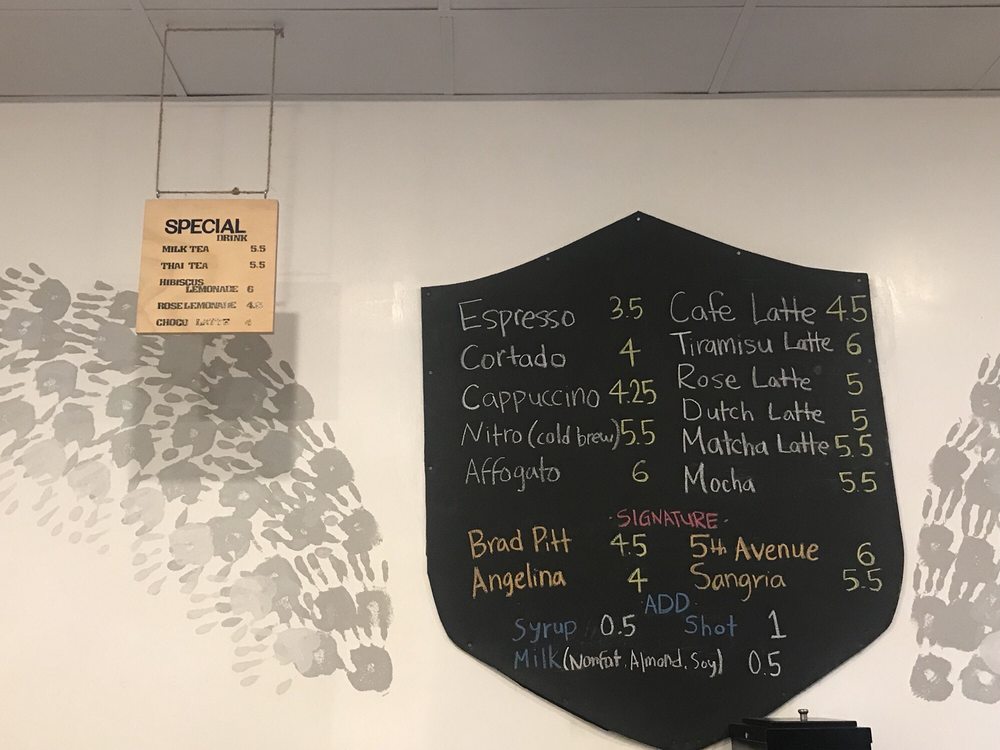 SPECIAL
DRINK
MILK TEA 5.5
THAI TEA 5.5
HIBISCUS
LEMONADE 6
ROSE LEMONADE 4.5
CHOCO LATTE
Espresso 3.5
Cortado 4
Cappuccino 4.25
Nitro (cold brew) 5.5
Affogato 6
Cafe Latte 4.5
Tiramisu Latte 6
Rose Latte 5
Dutch Latte 5
Matcha Latte 5.5
Mocha 5.5
·SIGNATURE·
Brad Pitt 4.5 5th Avenue 6
Angelina 4 Sangria 5.5
ADD
Syrup 0.5 Shot 1
Milk (Nonfat, Almond, Soy) 0.5